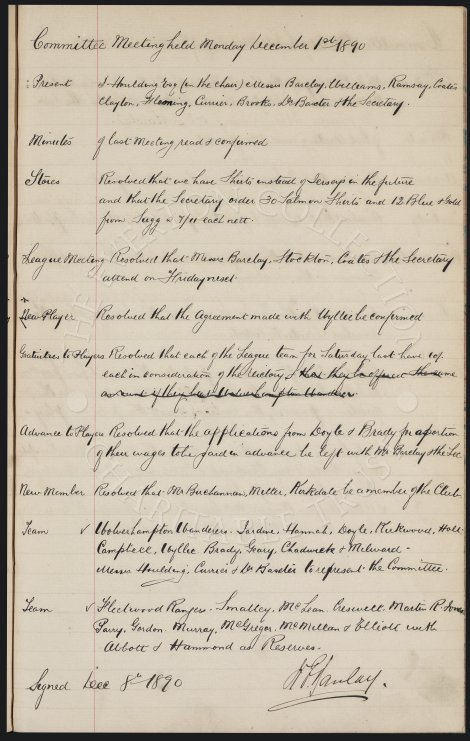 Committee Meeting held Monday December 1st 1890
Present J. Houlding Esq (in the chair) Messrs Barclay, Williams, Ramsay, Coates
Clayton, Fleming, Currier, Brooks, Dr Baxter & the Secretary.
Minutes of last Meeting read & confirmed
Stores Resolved that we have Shirts instead of Jerseys in the future
and that the Secretary order 30 Salmon Shirts and 12 Blue & Gold
from Sugg @ 7/11 each nett.
League Meeting Resolved that Messrs Barclay, Stockton, Coates & the Secretary
attend on Friday next
New Player Resolved that the Agreement made with Wyllie be confirmed
Gratuities to Players Resolved that each of the League team for Saturday last have 10/-
each in consideration of the Victory & that they be offered the same
amount if they beat Wolverhampton Wanderers
Advance to Players Resolved that the applications from Doyle & Brady for a portion
of their wages to be paid in advance be left with Mr Barclay & the Sec
New Member Resolved that Mr Buchannan, Kirkdale be a member of the Club
Team v Wolverhampton Wanderers. Jardine, Hannah, Doyle, Kirkwood, Holt
Campbell, Wyllie Brady, Geary, Chadwick & Milward -
Messrs Houlding, Currier & Dr Baxter to represent the Committee.
Team v Fleetwood Rangers. Smalley, McLean, Cresswell, Martin R. Jones
Parry, Gordon, Murray, McGregor, McMillan & Elliott with
Abbott & Hammond as Reserves.
Signed Dec 8th 1890